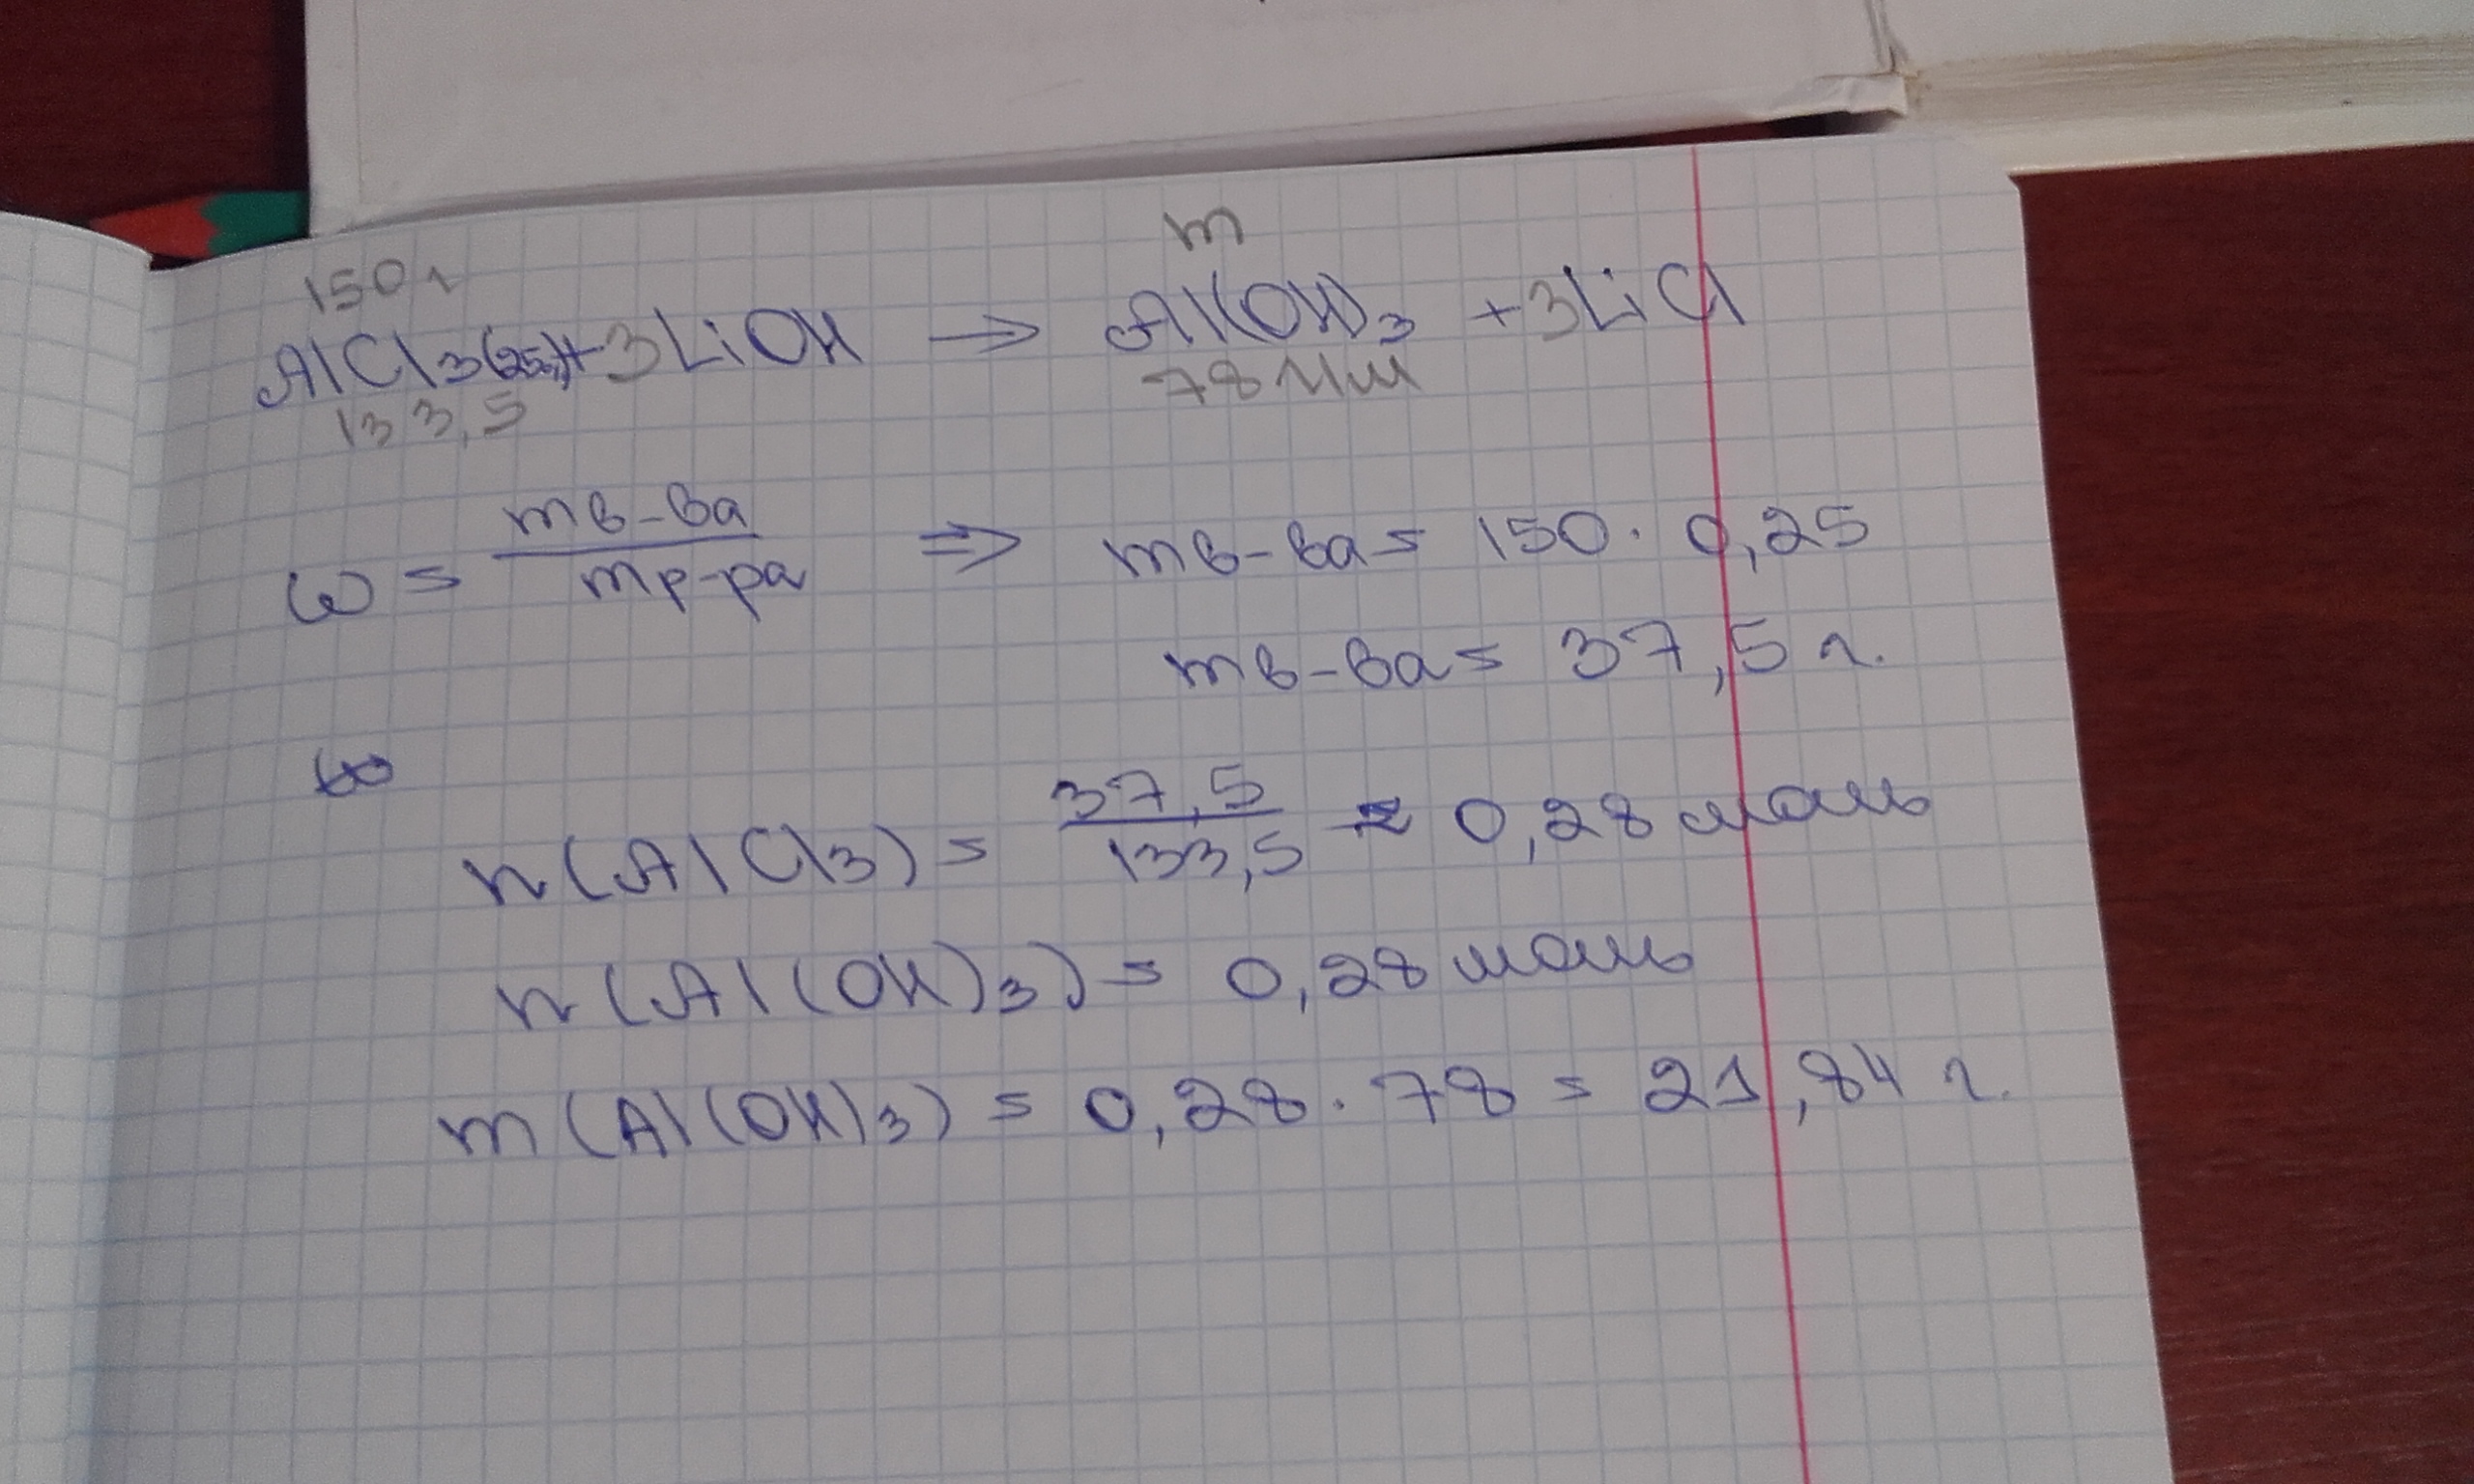 150 г m
AlCl3(25%)+3LiOH → Al(OH)3 +3LiCl
133,5 78 г/м
ω = mв-ва / mр-ра ⇒ mв-ва = 150 · 0,25
mв-ва = 37,5 г.
n(AlCl3) = 37,5 / 133,5 ≈ 0,28 моль
n(Al(OH)3) = 0,28 моль
m(Al(OH)3) = 0,28 · 78 = 21,84 г.